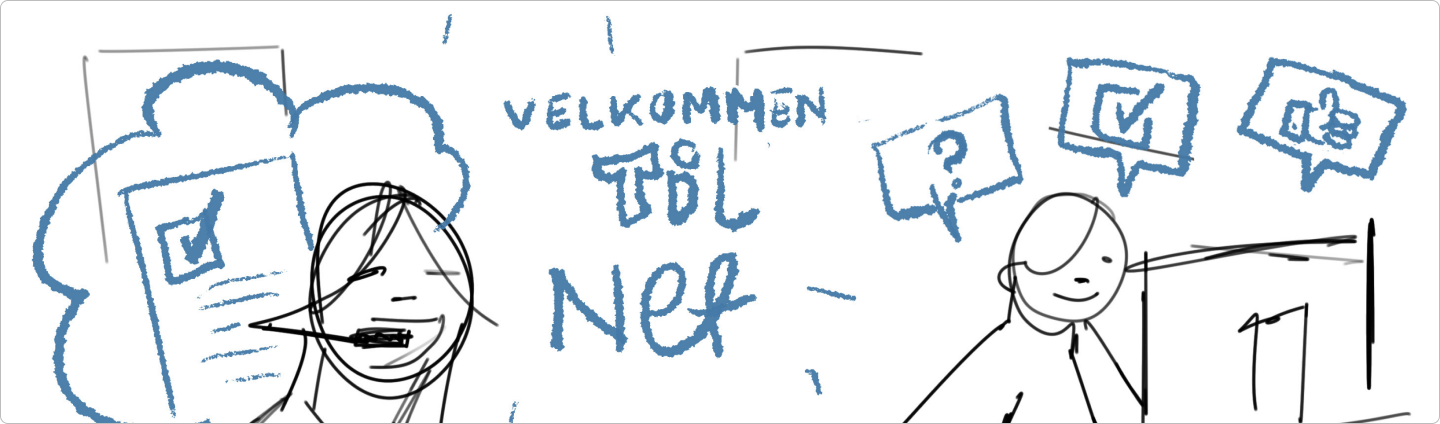 VELKOMMEN
Til
Net
?